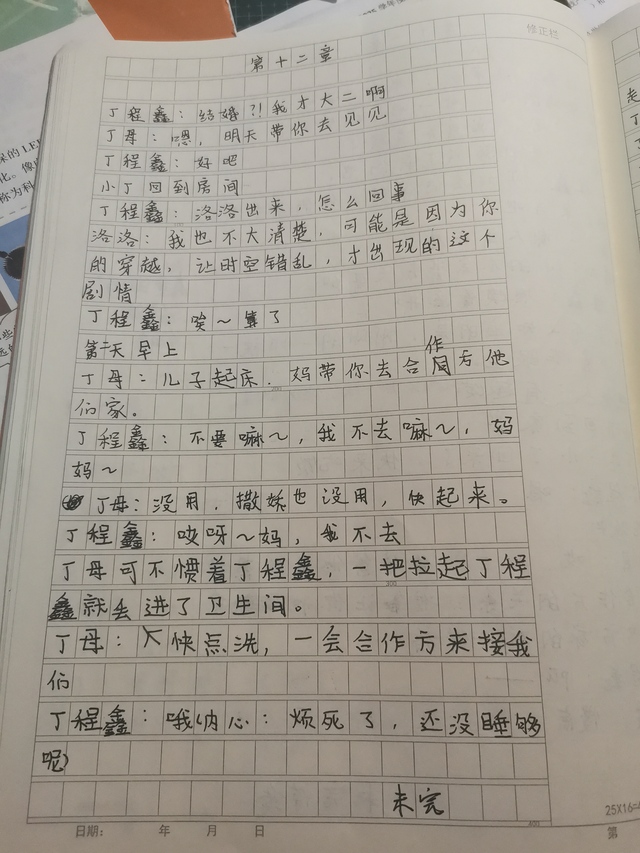 修正栏
第十二章
丁程鑫：结婚?!我才大二啊
丁母：嗯，明天带你去见见
丁程鑫：好吧
小丁回到房间
丁程鑫：洛洛出来，怎么回事
洛洛：我也不大清楚，可能是因为你
的穿越，让时空错乱，才出现的这个
剧情
丁程鑫：唉～算了
第二天早上
丁母：儿子起床，妈带你去合作方他
们家。
丁程鑫：不要嘛～，我不去嘛～，妈
妈～
丁母：没用，撒娇也没用，快起来。
丁程鑫：哎呀～妈，我不去
丁母可不惯着丁程鑫，一把拉起丁程
鑫就去进了卫生间。
丁母：快点洗，一会合作方来接我
们
丁程鑫：哦(内心：烦死了，还没睡够
呢)
未完
25X16=
日期： 年 月 日
第